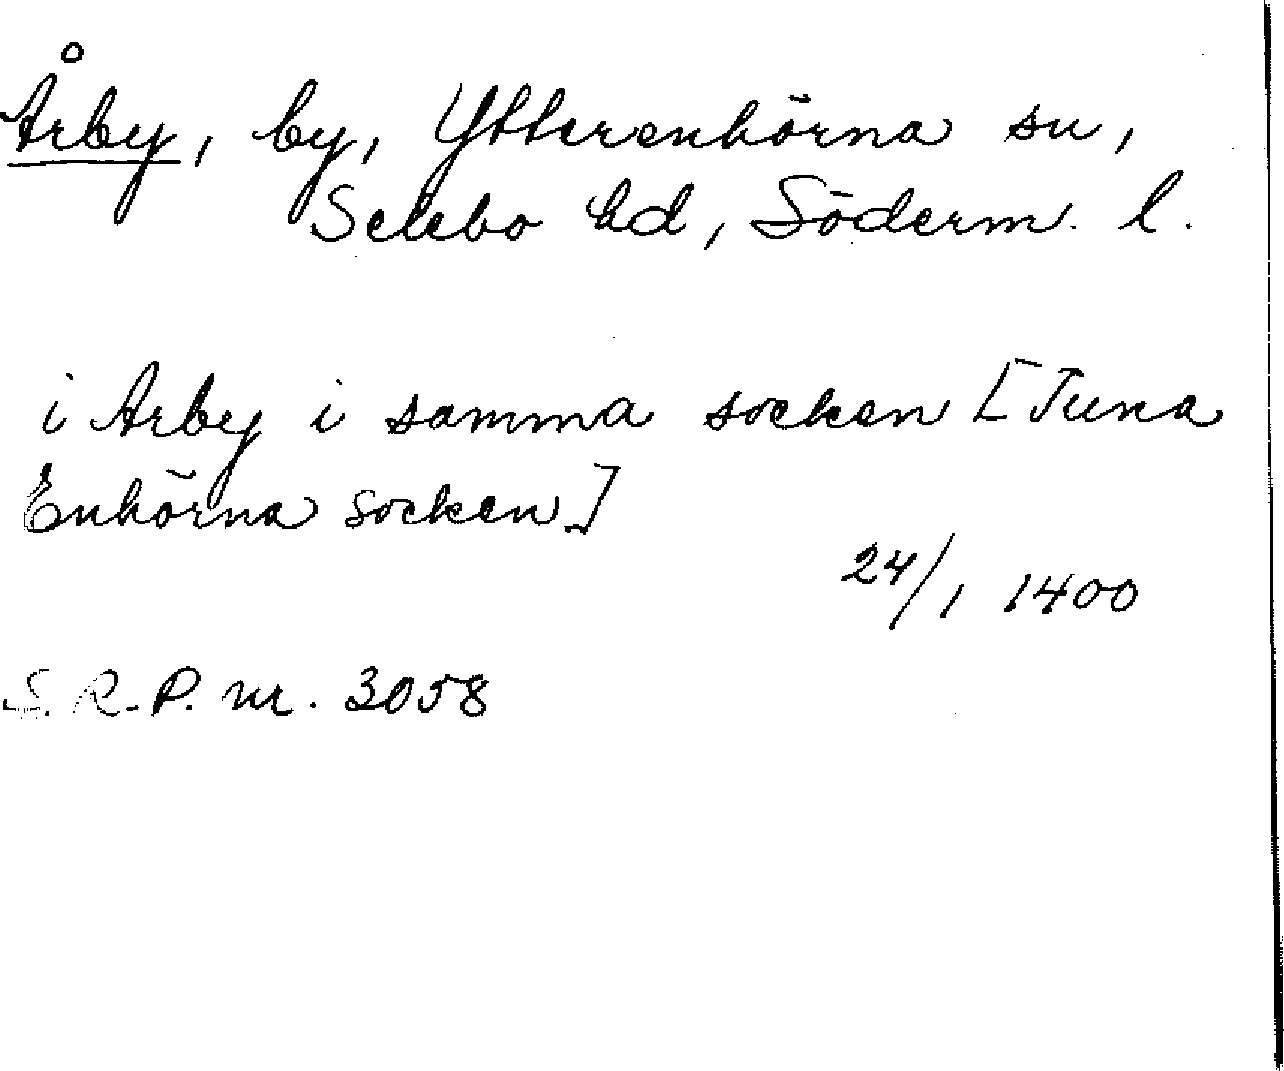 Årby, by, Ytterenhörna sn,
Selebo hd, Söderm. l.
i Arby i samma socken [Tuna
Enhörna socken]
24/1 1400
S. R. P. nr. 3058